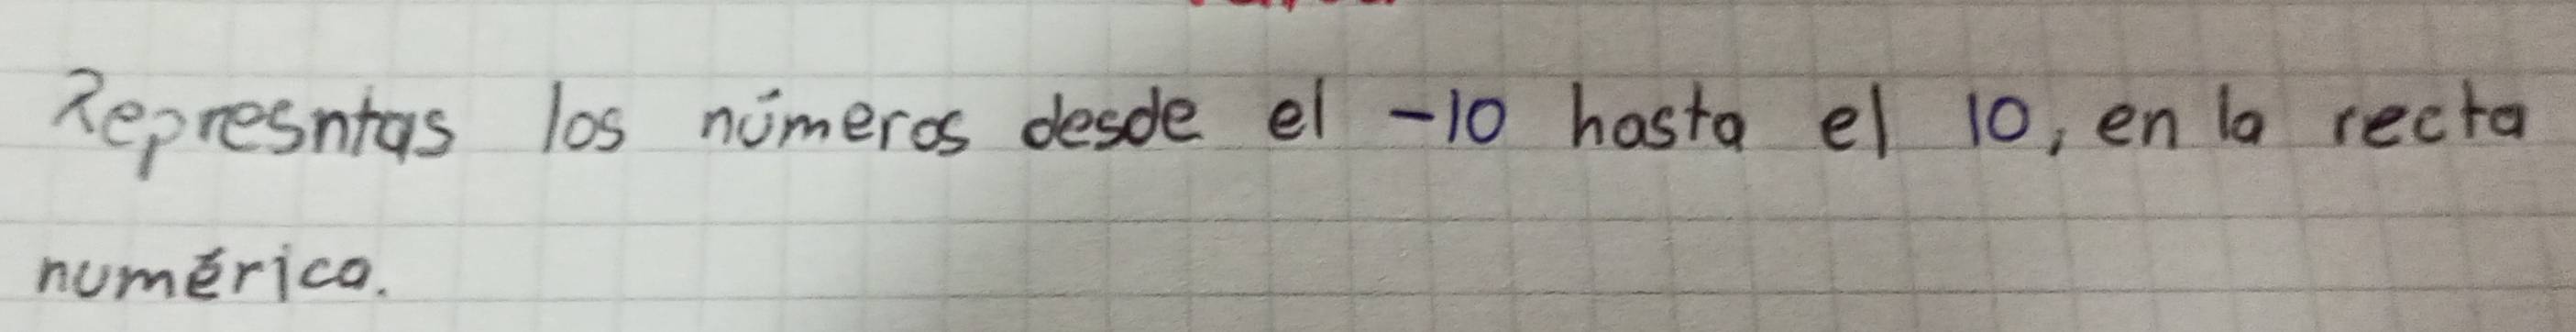 Represntas los números desde el -10 hasta el 10, en la recta
numérica.